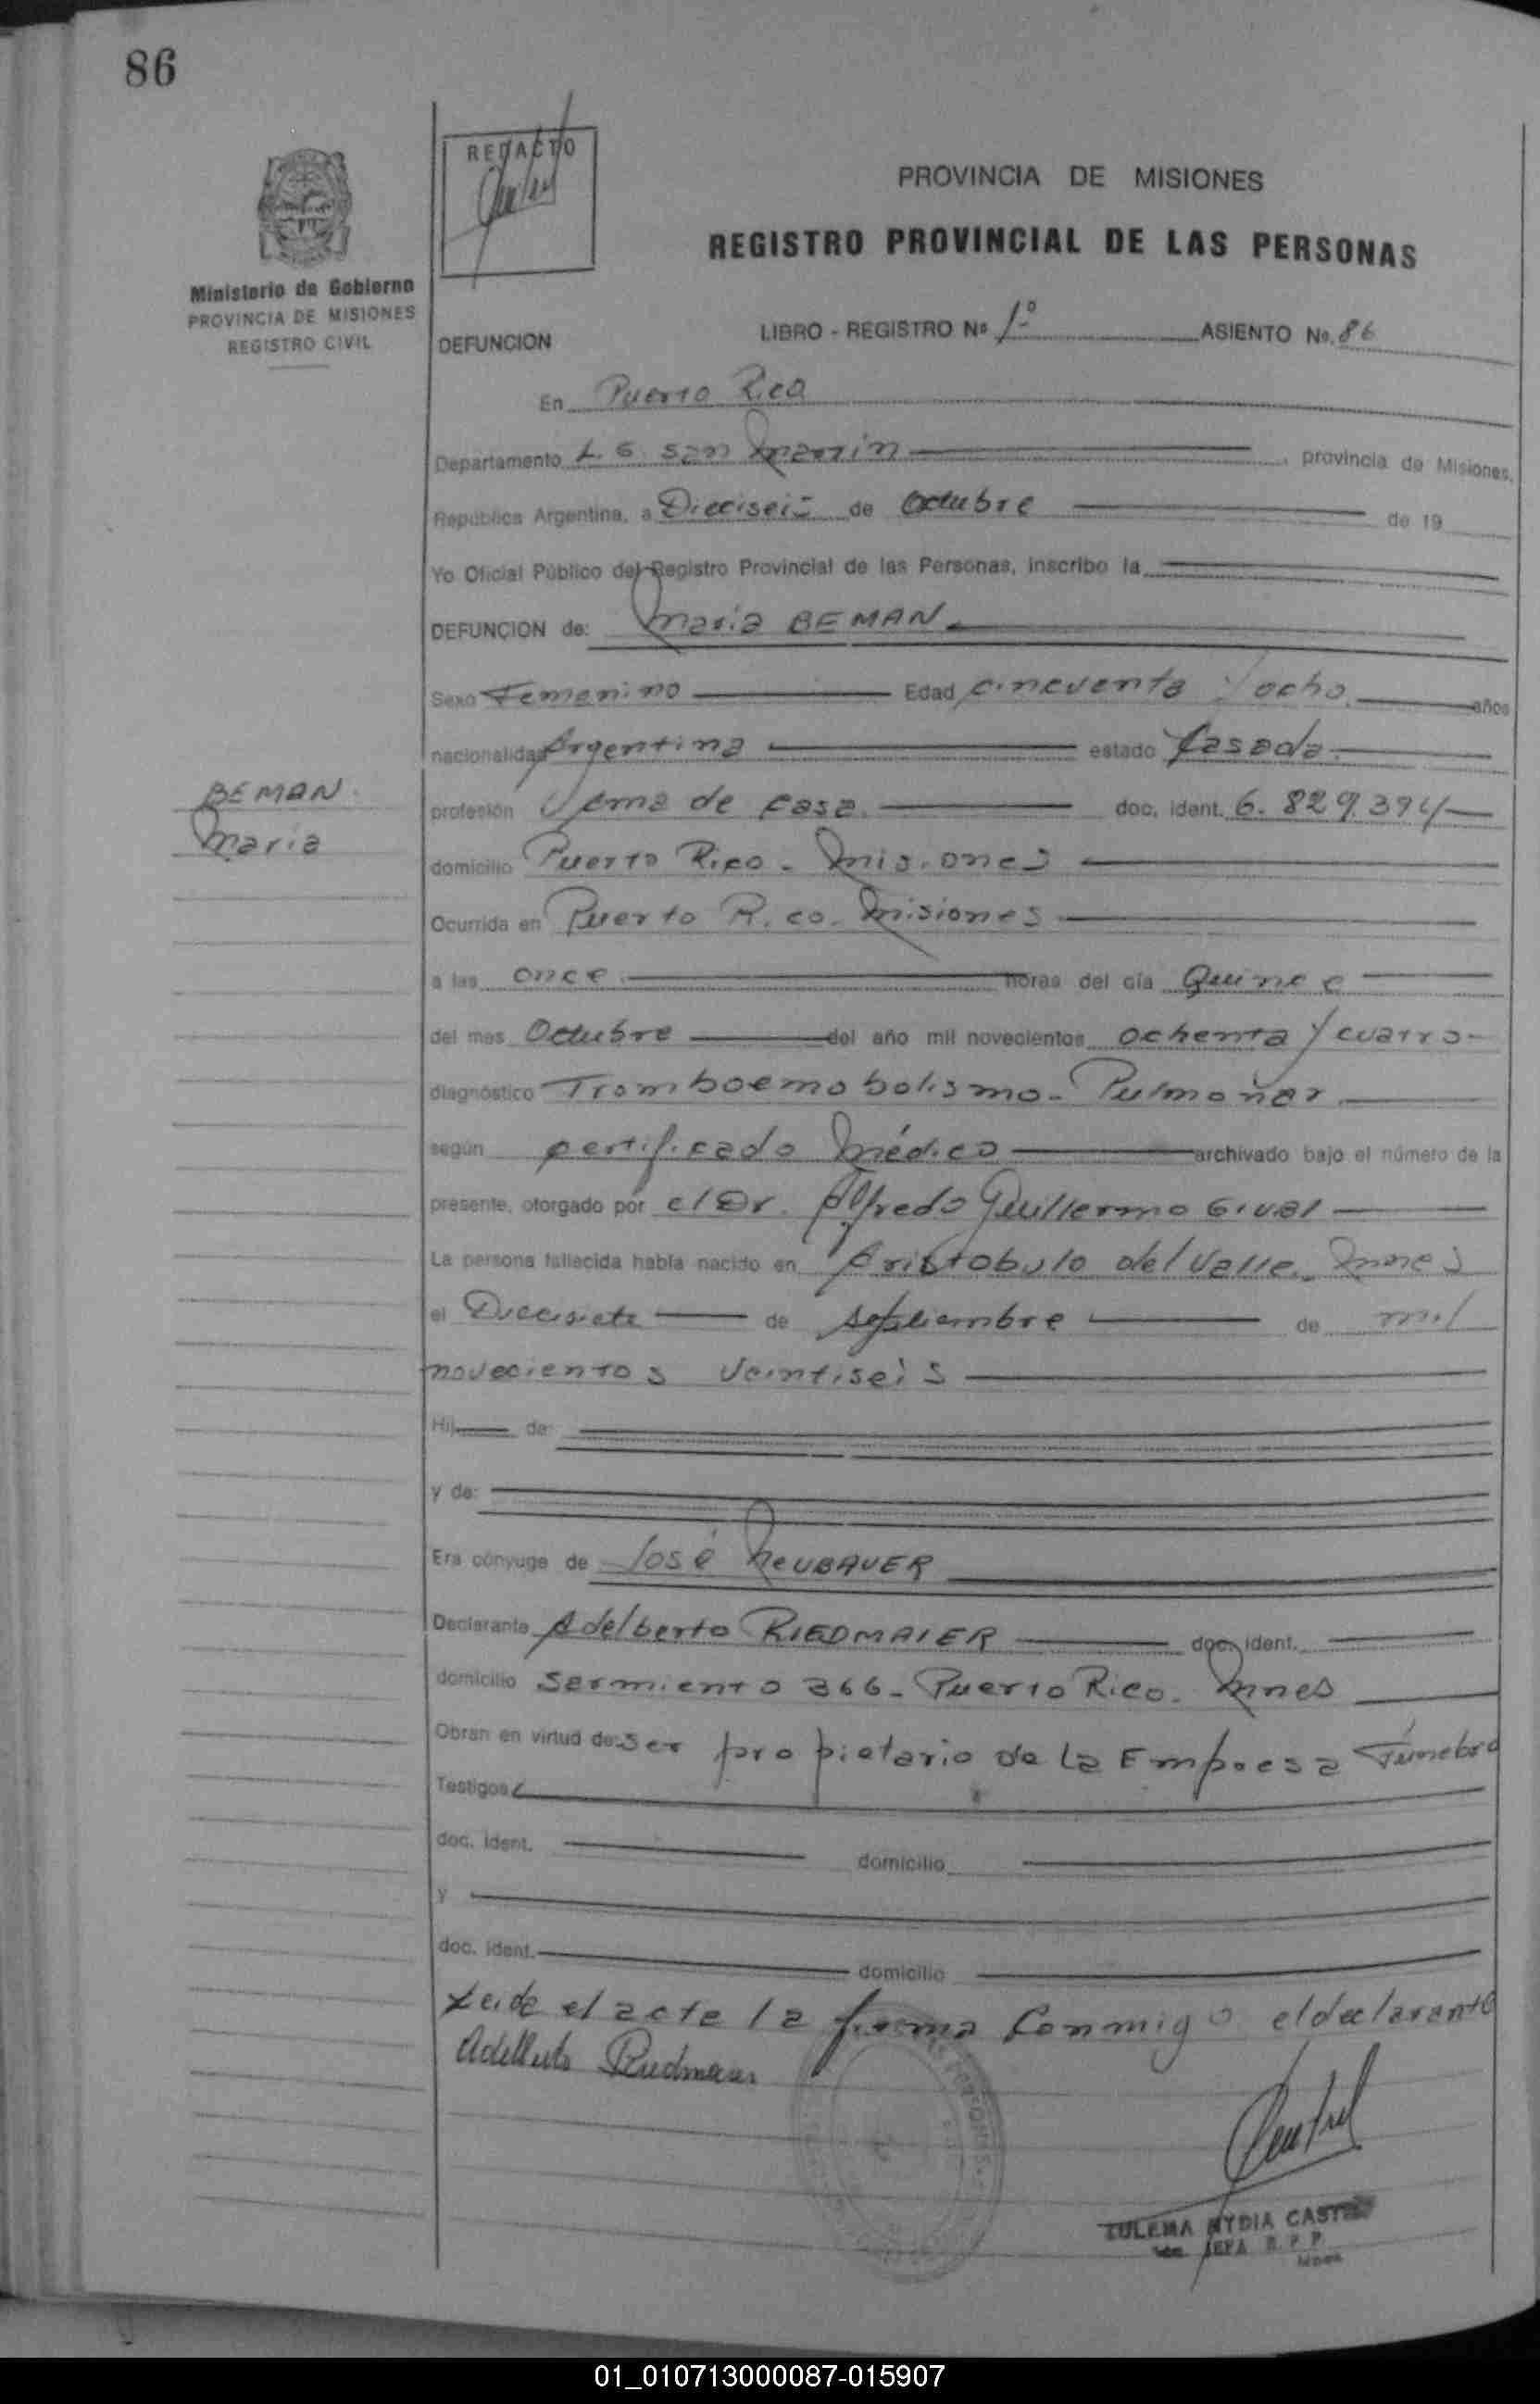 86
REDACTO
PROVINCIA DE MISIONES
REGISTRO PROVINCIAL DE LAS PERSONAS
Ministerio de Gobierno
PROVINCIA DE MISIONES
REGISTRO CIVIL
DEFUNCION
LIBRO - REGISTRO Nº 1º ASIENTO No. 86
En Puerto Rico
Departamento L. G. San Martin provincia de Misiones,
República Argentina, a Dieciseis de Octubre de 19
Yo Oficial Público del Registro Provincial de las Personas, inscribo la
DEFUNCION de: Maria BEMAN
Sexo Femenino Edad cincuenta y ocho años
nacionalidad Argentina estado Casada
BEMAN
Maria
profesión Ama de casa. doc. ident. 6.829.394
domicilio Puerto Rico - Misiones
Ocurrida en Puerto Rico - Misiones
a las once horas del día Quince
del mes Octubre del año mil novecientos ochenta y cuatro
diagnóstico Tromboemobolismo - Pulmonar
según certificado Médico archivado bajo el número de la
presente, otorgado por el Dr. Alfredo Guillermo
La persona fallecida había nacido en Aristobulo del Valle. Mnes
el Diecisiete de septiembre de mil
novecientos veintiseis
Hij de:
y de:
Era cónyuge de José NEUBAUER
Declarante Adelberto RIEDMAIER doc. ident.
domicilio Sarmiento 366 - Puerto Rico. Mnes
Obran en virtud de: ser propietario de la Empresa Fúnebre
Testigos
doc. ident. domicilio
y
doc. ident. domicilio
Leida el acta la firma conmigo el declarante
Adelberto Riedmaier
NYDIA
JEFA R. P. P.
01_010713000087-015907